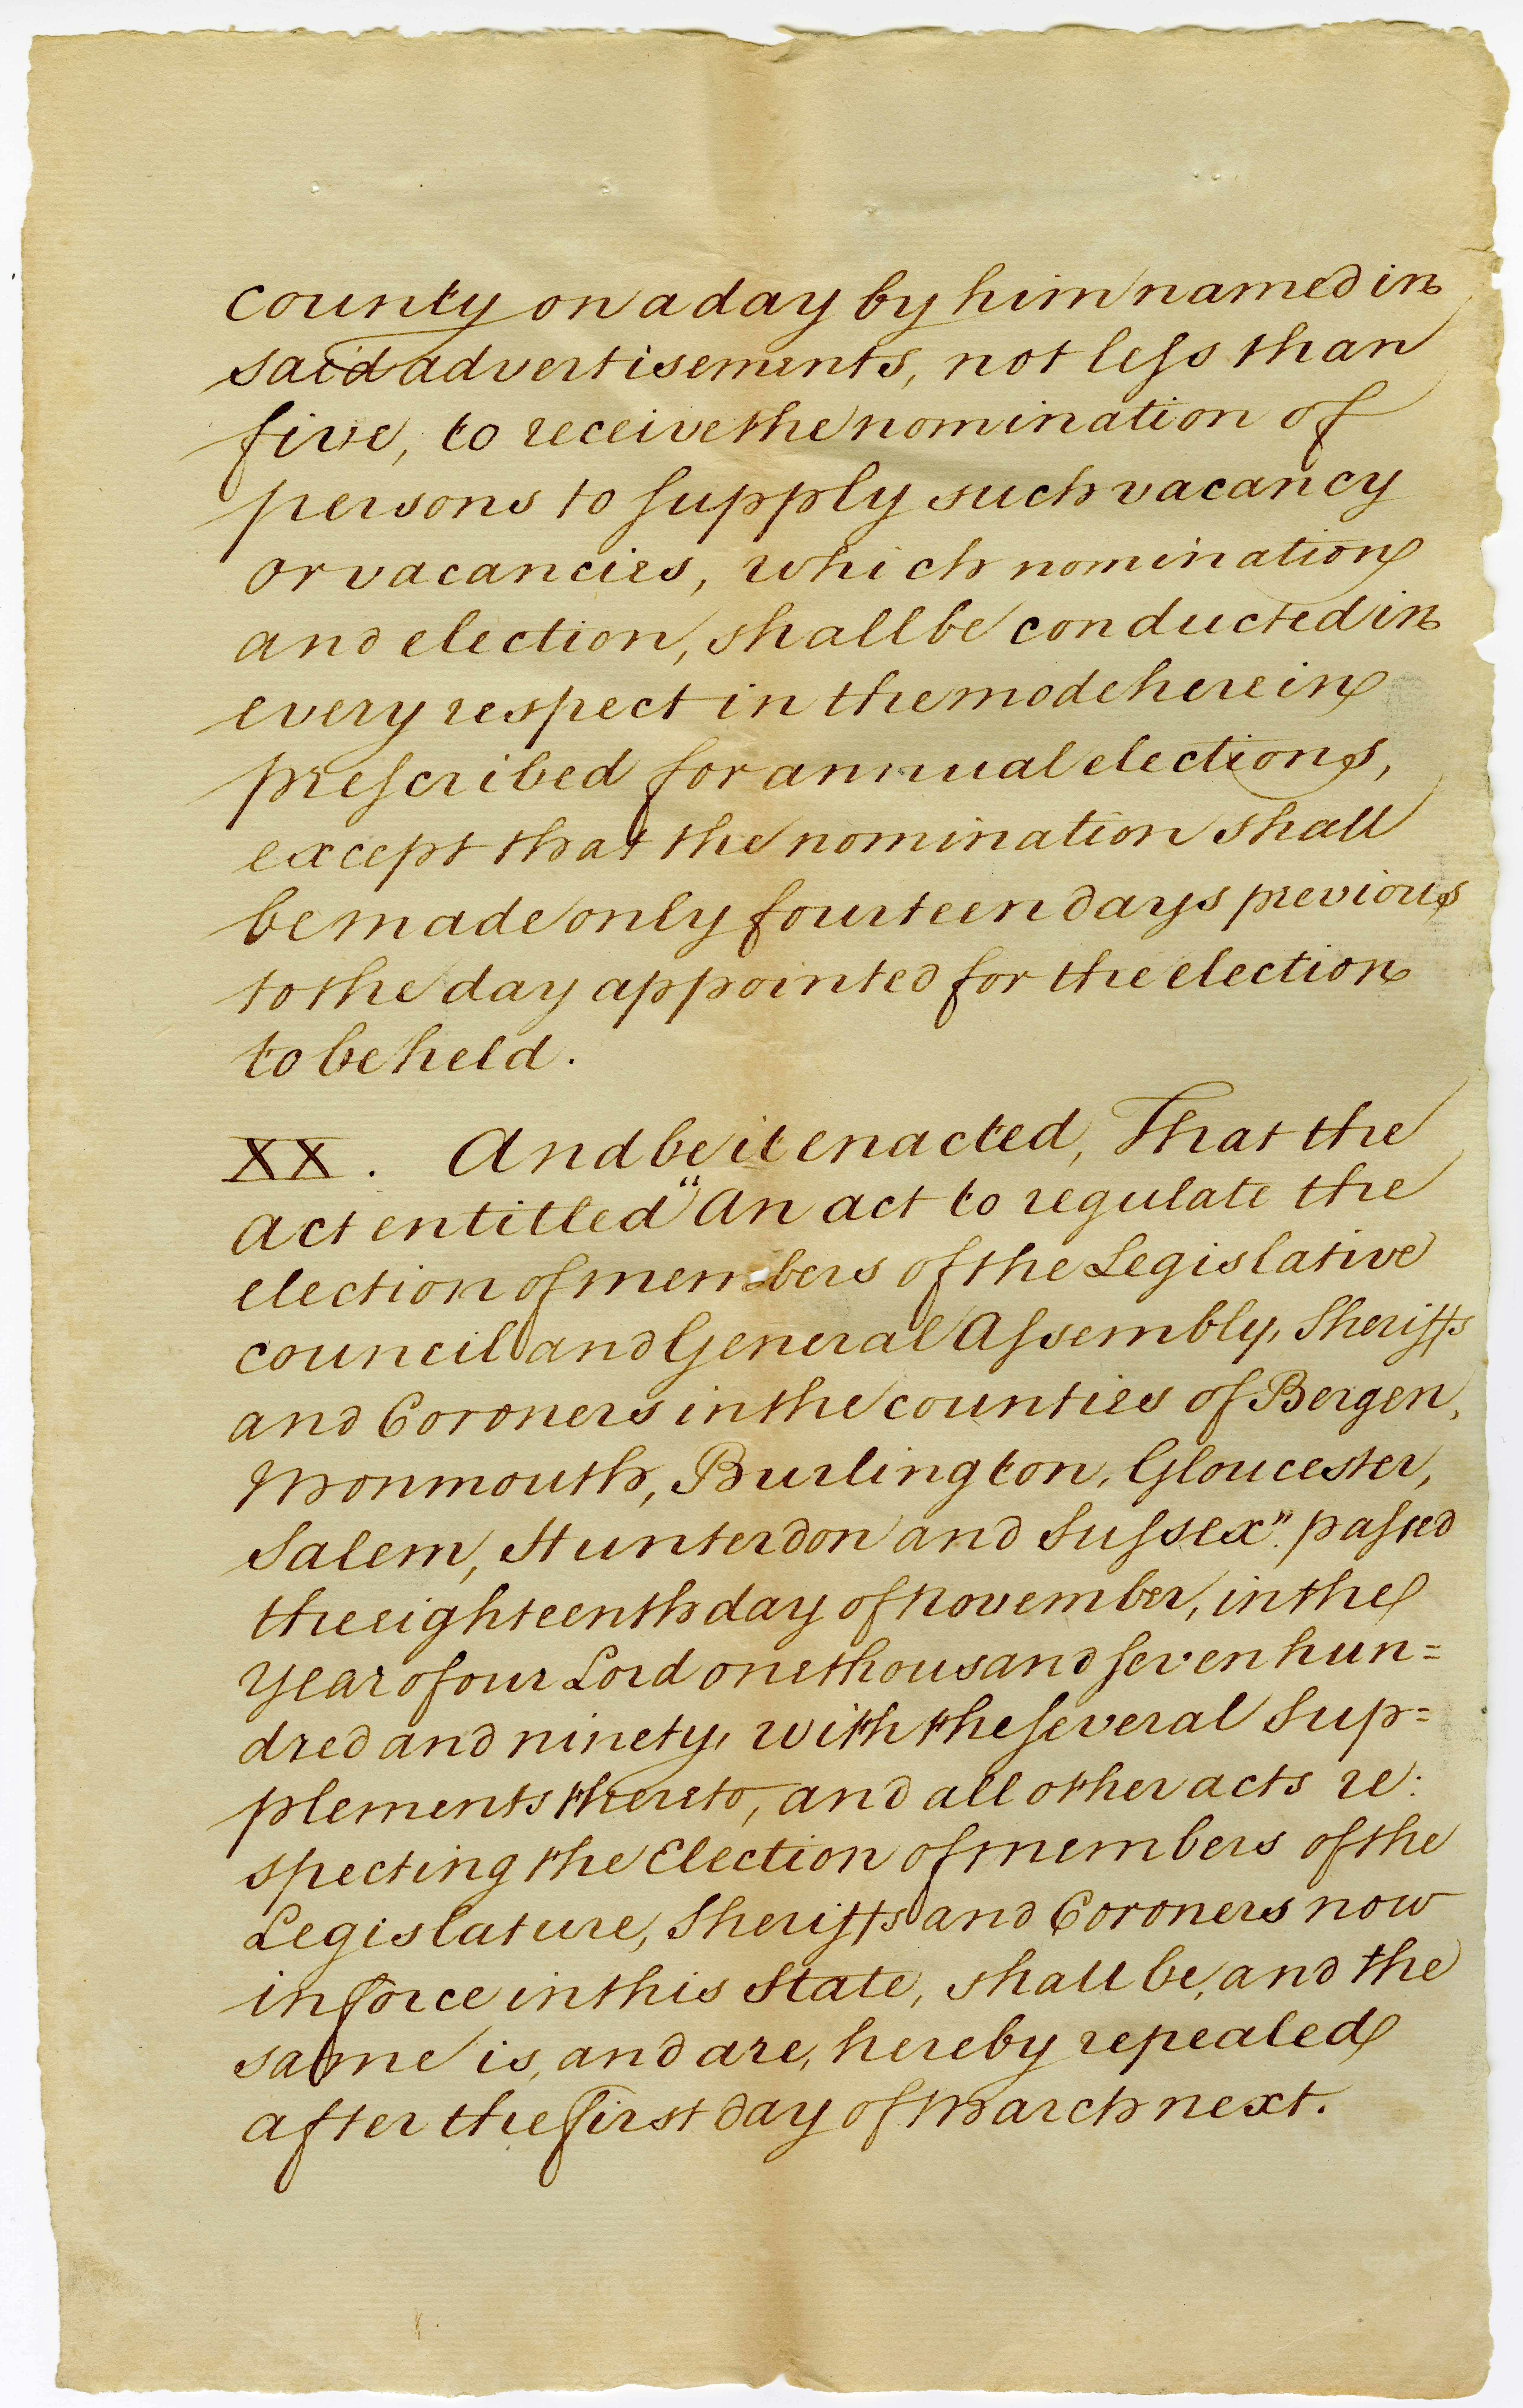 county on a day by him named in
said advertisements, not less than
five, to receive the nomination of
persons to supply such vacancy
or vacancies, which nomination
and election, shall be conducted in
every respect in the mode herein
prescribed for annual elections,
except that the nomination shall
be made only fourteen days previous
to the day appointed for the election
to be held.
XX. And be it enacted, That the
act entitled "An act to regulate the
election of members of the Legislative
council and General Assembly, Sheriffs
and Coroners in the counties of Bergen,
Monmouth, Burlington, Gloucester,
Salem, Hunterdon and Sussex". passed
the eighteenth day of November, in the
year of our Lord one thousand seven hun=
dred and ninety, with the several Sup=
plements thereto, and all other acts re:
specting the Election of members of the
Legislature, Sheriffs and Coroners now
in force in this State, shall be, and the
same is, and are, hereby repealed
after the first day of March next.